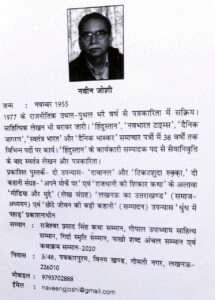 नवीन जोशी
जन्म : नवम्बर 1955
1977 के राजनीतिक उथल-पुथल भरे वर्ष से पत्रकारिता में सक्रिय।
साहित्यिक लेखन भी बराबर जारी। 'हिंदुस्तान', 'नवभारत टाइम्स', 'दैनिक
जागरण', 'स्वतंत्र भारत' और 'दैनिक भास्कर' समाचार पत्रों में 38 वर्षों तक
विभिन्न पदों पर कार्य। 'हिन्दुस्तान' के कार्यकारी सम्पादक पद से सेवानिवृत्ति
के बाद स्वतंत्र लेखन और पत्रकारिता।
प्रकाशित पुस्तकें- दो उपन्यास-'दावानल' और 'टिकटशुदा रुक्का', दो
कहानी संग्रह-'अपने मोर्चे पर' एवं 'राजधानी की शिकार कथा' के अलावा
'मीडिया और मुद्दे' (लेख संग्रह) 'लखनऊ का उत्तराखण्ड' (समाज-
अध्ययन) एवं 'छोटे जीवन की बड़ी कहानी' (सम्पादन) उपन्यास 'धुंध में
पहाड़' प्रकाशनाधीन
सम्मान : राजेश्वर प्रसाद सिंह कथा सम्मान, गोपाल उपाध्याय साहित्य
सम्मान, गिर्दा स्मृति सम्मान, पाखी शब्द अंचल सम्मान एवं
कथाक्रम सम्मान-2020
निवास : 3/48, पत्रकारपुरम, विनय खण्ड, गोमती नगर, लखनऊ-
226010
मोबाइल : 9793702888
ईमेल : naveengjoshi@gmail.com